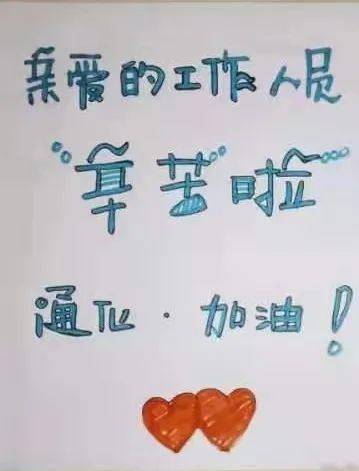 亲爱的工作人员
辛苦啦
通化·加油!